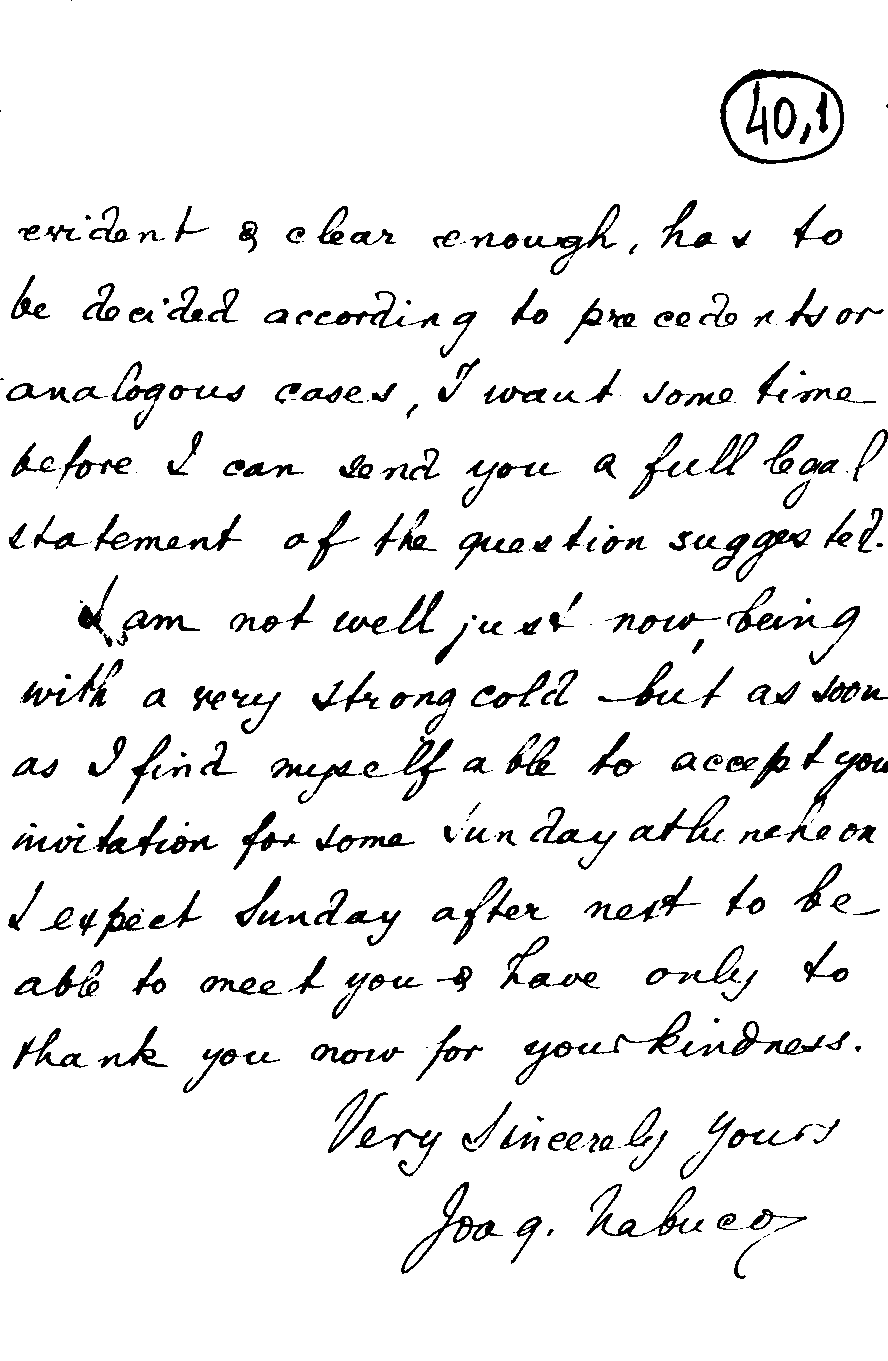 40,1
evident & clear enough, has to
be decided according to precedents or
analogous cases, I want some time
before I can send you a full legal
statement of the question suggested.
I am not well just now, being
with a very strong cold - but as soon
as I find myself able to accept you
invitation for some Sunday at luncheon
I expect Sunday after next to be
able to meet you & have only to
thank you now for your kindness.
Very Sincerely yours
Joaq. Nabuco